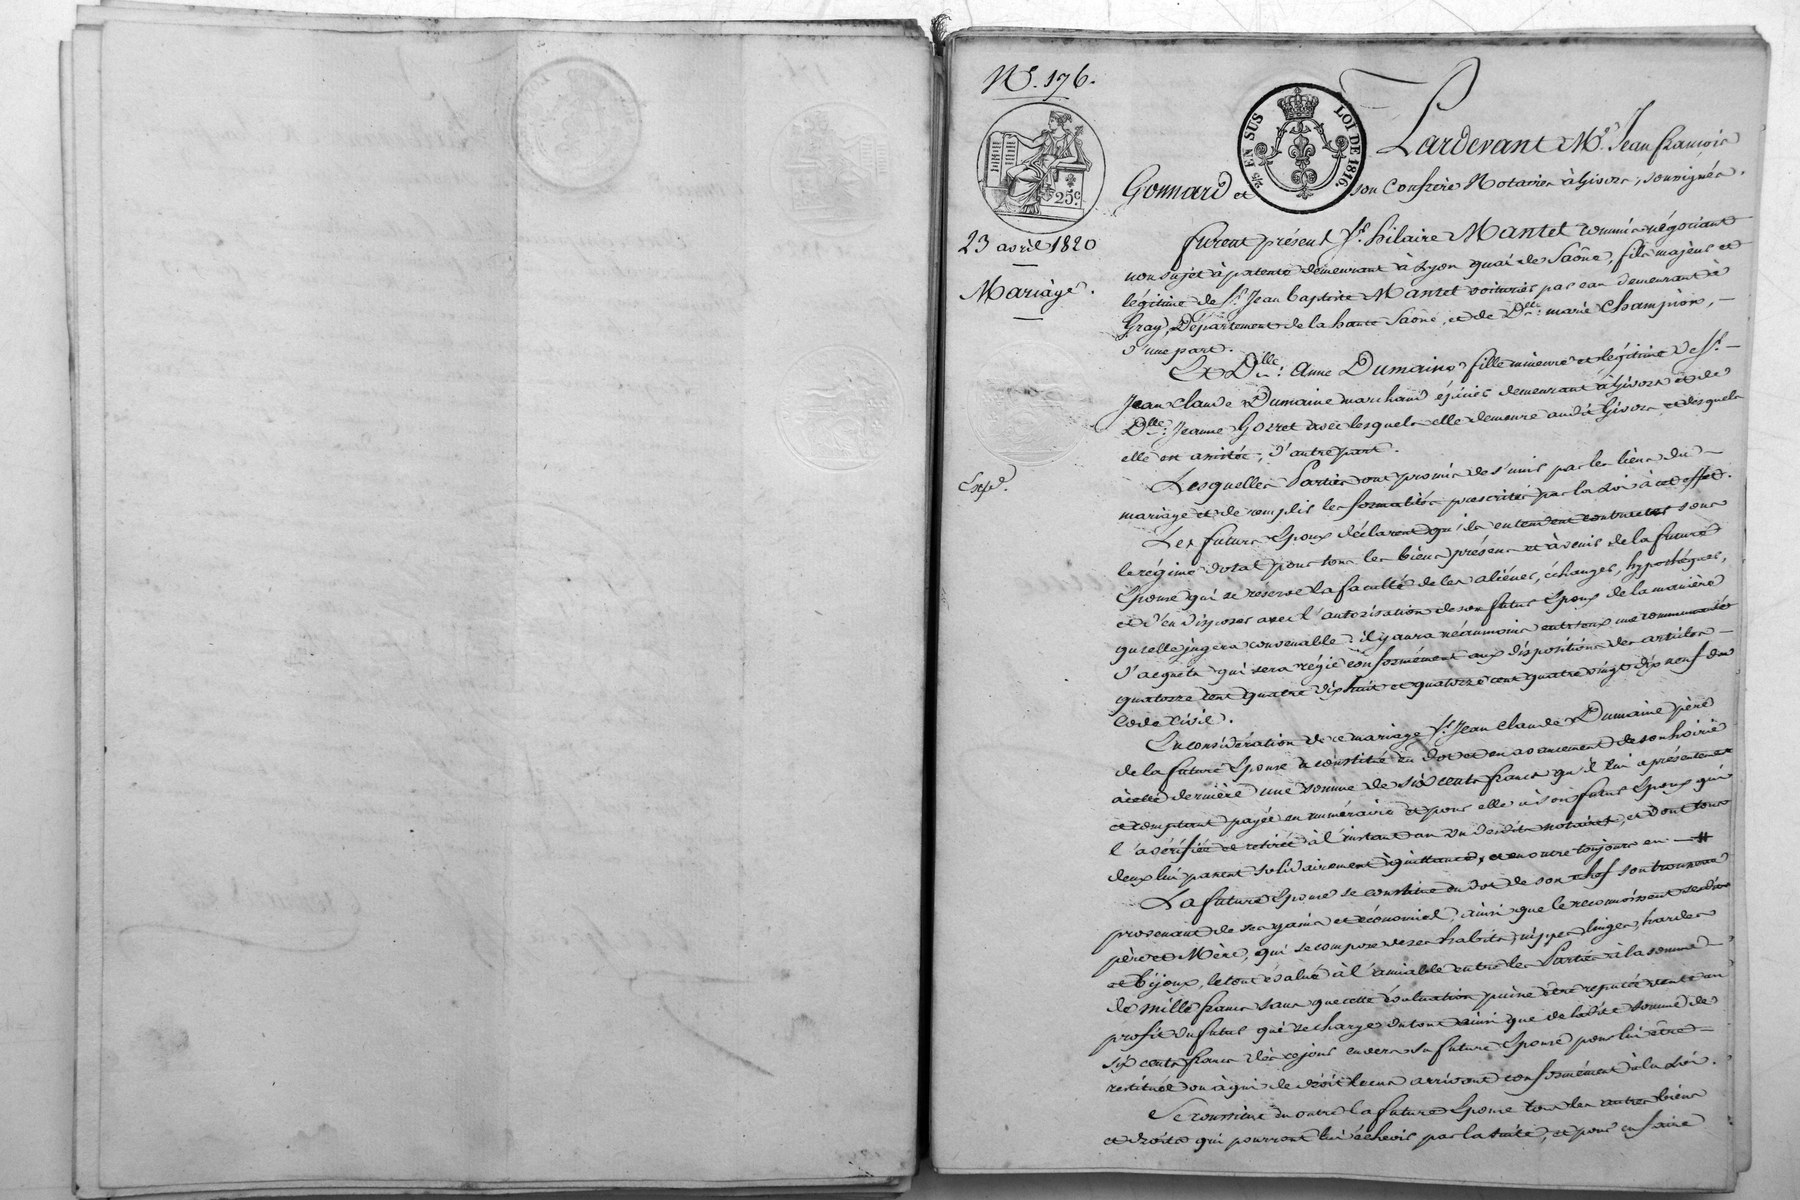 N.º 176.
5/5 EN SUS LOI DE 1816.
25c
23 avril 1820
Mariage.
Expé.
Pardevant Me. Jean françois
Gonnard et son Confrère Notaires à Givors, soussignés.
furent présent Sr. hilaire Mantel commis négociant
non sujet à patente demeurant à Lyon quai de Saône, fils majeur et
légitime de Sr. Jean baptiste Mantel voiturier par eau demeurant à
Gray, Département de la haute Saône, et de Dlle. marie Champion,
d'une part.
Et Dlle. Anne Dumaine fille mineure et légitime de Sr.
Jean Claude Dumaine marchand épicier demeurant à Givors et de
Dlle. Jeanne Goiret avec lesquels elle demeure audit Givors et desquels
elle est assistée, d'autre part.
Lesquelles Parties ont promis de s'unir par les liens du
mariage et de remplir les formalités prescrites par la Loi à cet effet.
Les futurs Epoux déclarent qu'ils entendent contracter sous
le régime dotal pour tous les biens présens et à venir de la future
Epouse qui se réserve la faculté de les aliéner, échanger, hypothéquer,
et d'en disposer avec l'autorisation de son futur Epoux de la manière
qu'elle jugera convenable : il y aura néaumoins entr'eux une communauté
d'acquêts qui sera régie conformément aux dispositions des articles
quatorze cent quatre vingt dix huit et quatorze cent quatre vingt dix neuf du
Code Civil.
En considération de ce mariage Sr. Jean Claude Dumaine père
de la future Epouse a constitué en dot et en avancement de son hoirie
à cette dernière une somme de six cents francs qu'il lui a présentement
et comptant payée en numéraire et pour elle à son futur Epoux qui
l'a vérifiée et retirée à l'instant au vu desdits notaires, et dont tous
deux lui passent solidairement quittance, et en outre toujours en #
La future Epouse se constitue en dot de son chef son trousseau
provenant de ses gains et économies, ainsi que le reconnoissent sesdits
père et Mère, qui se compose de ses habits, nippes, linges, hardes
et bijoux, le tout évalué à l'amiable entre les Parties à la somme
de mille francs sans que cette évaluation puisse être réputée vente au
profit du futur qui se charge du tout ainsi que de ladite somme de
six cents francs dès ce jour envers sa future Epouse pour lui être
restitués ou à qui de droit le cas arrivant conformément à la Loi.
Se constitue en outre la future Epouse tous les autres biens
et droits qui pourront lui échoir par la suite, et pour en faire